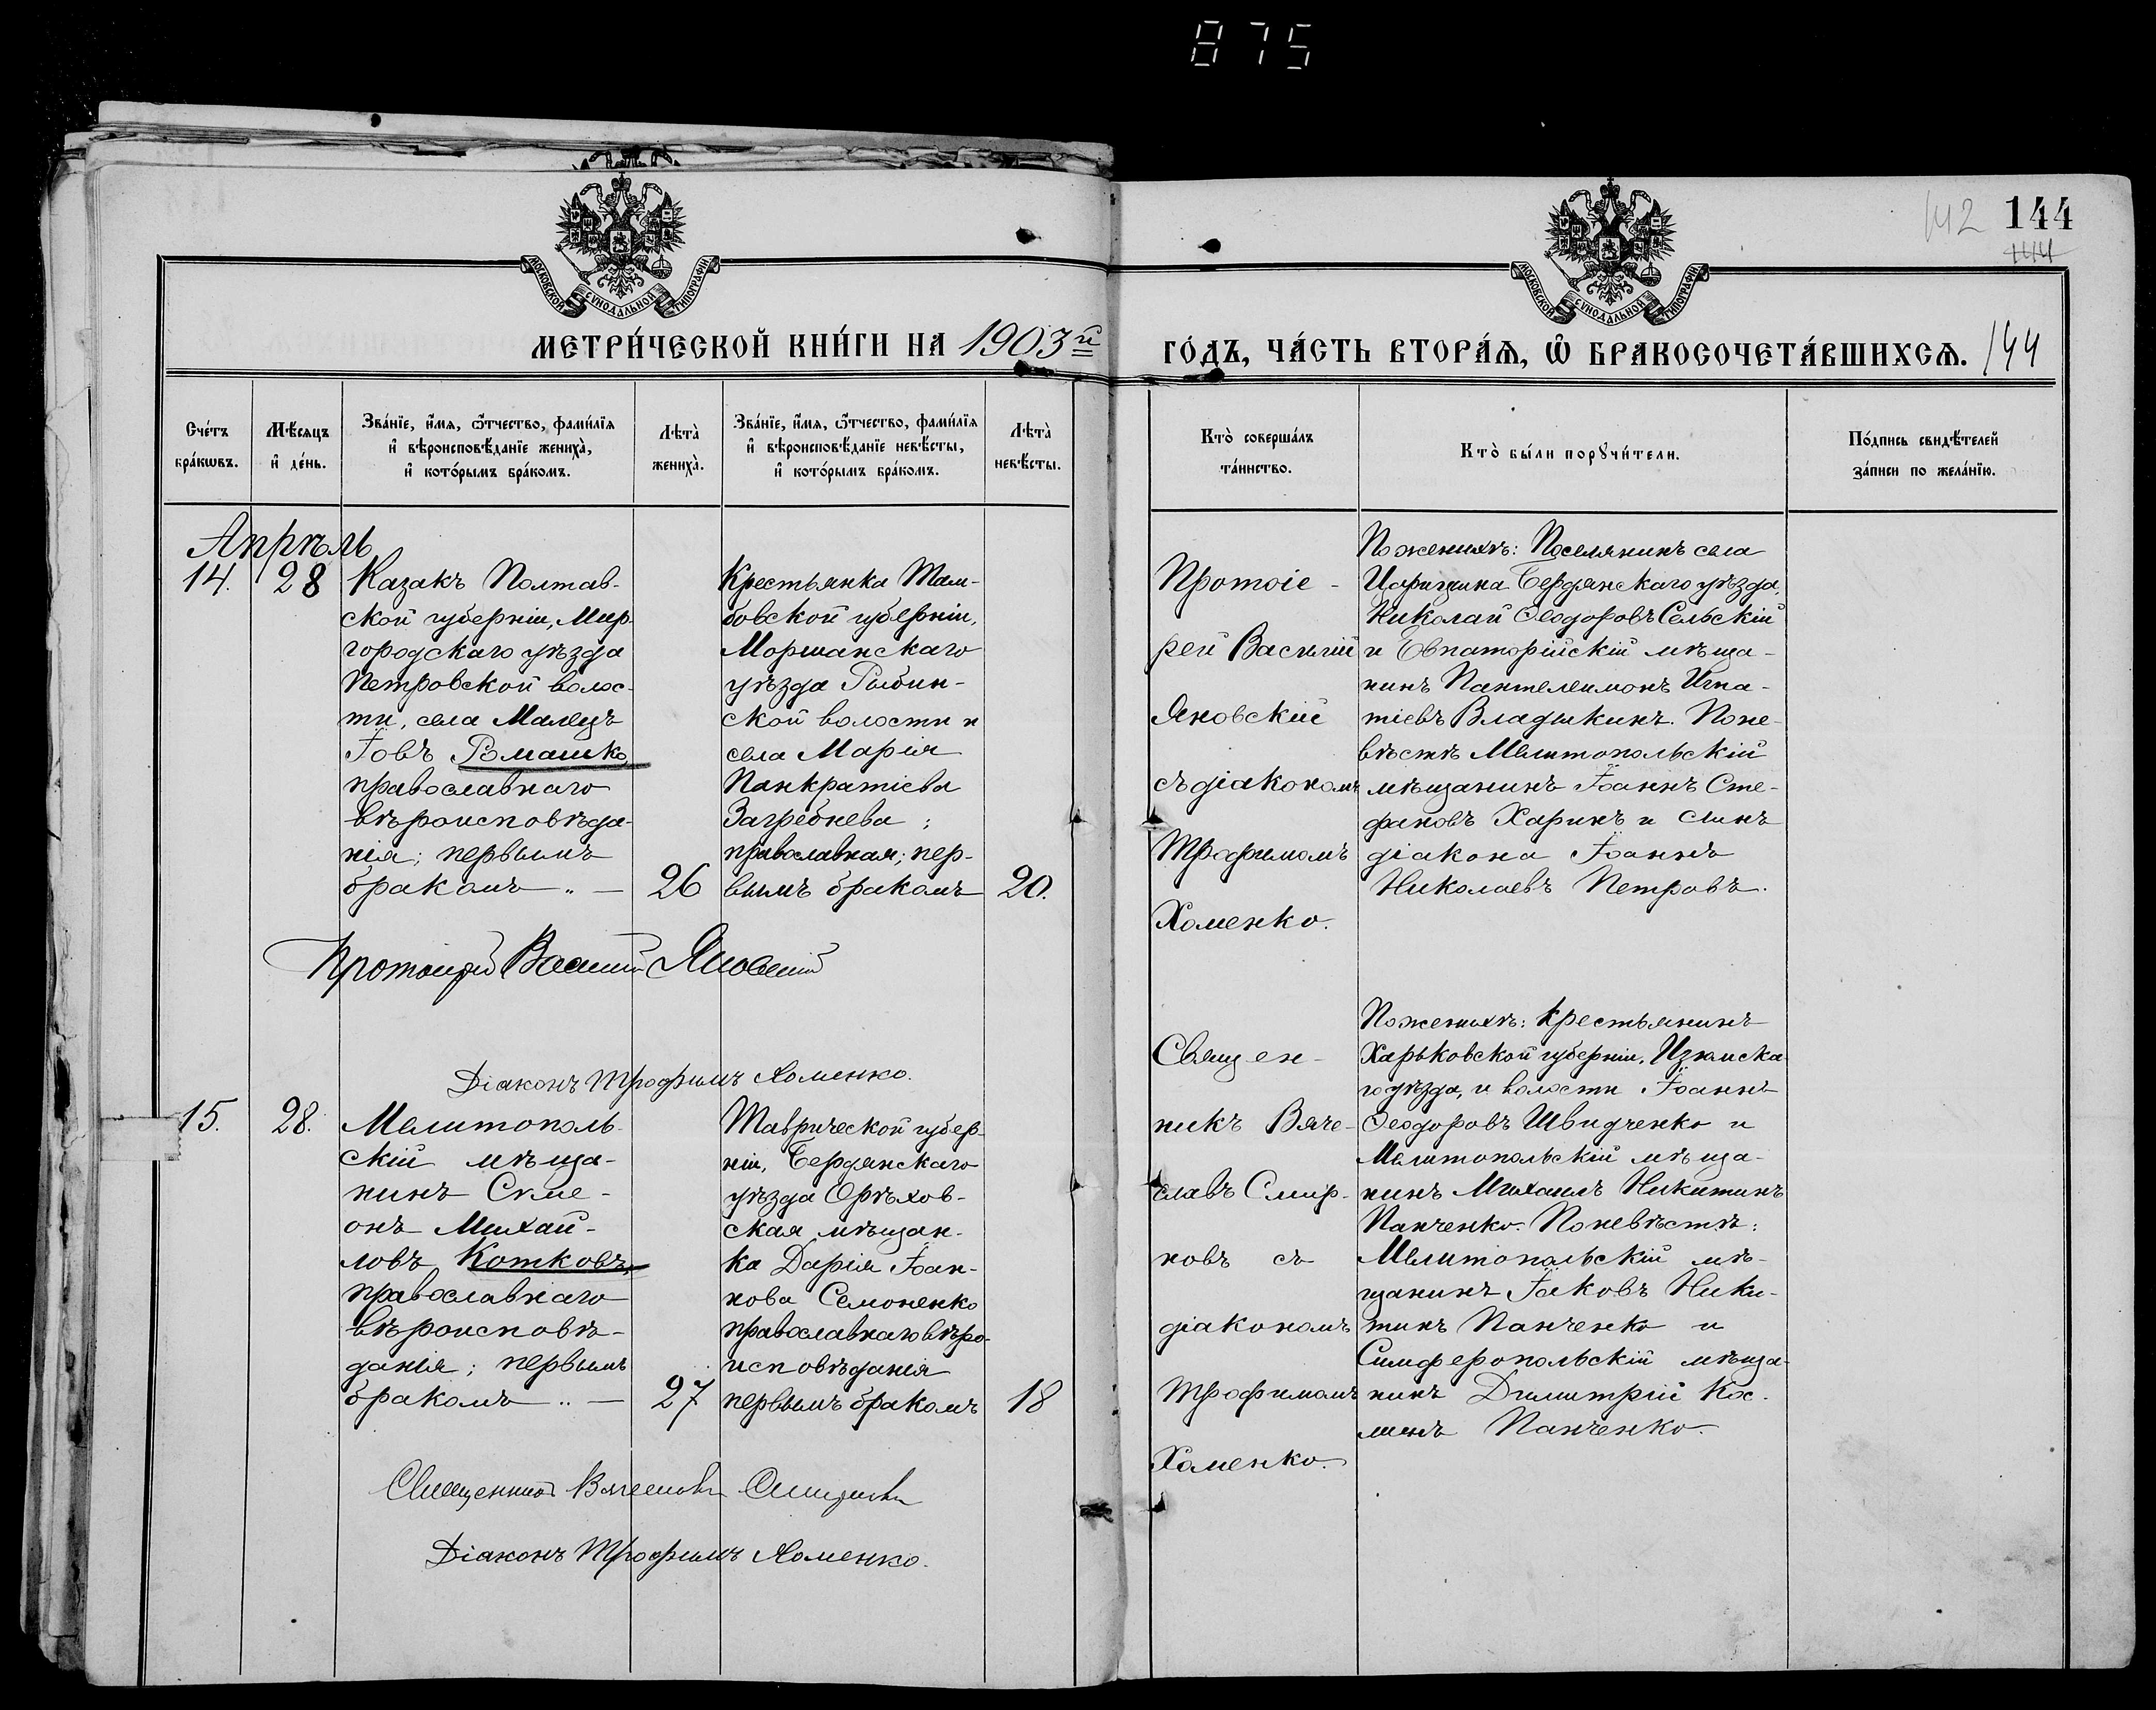 875
142 144
144
МОСКОВСКОЙ СУНОДАЛЬНОЙ ТИПОГРАФІИ
МОСКОВСКОЙ СУНОДАЛЬНОЙ ТИПОГРАФІИ
МЕТРИ́ЧЕСКОЙ КНИ́ГИ НА 1903й
ГО́ДЪ, ЧА́СТЬ ВТОРА́Я, Ѽ БРАКОСОЧЕТА́ВШИХСѦ. 144
Сче́тъ
бра́кѡвъ.
Мѣ́сѧцъ
и҆ де́нь.
Зва́нїе, и҆́мѧ, ѻ҆́тчество, фами́лїѧ
и҆ вѣроисповѣ́данїе жениха̀,
и҆ кото́рымъ бра́комъ.
Лѣта̀
жениха̀.
Зва́нїе, и҆́мѧ, ѻ҆́тчество, фами́лїѧ
и҆ вѣроисповѣ́данїе невѣ́сты,
и҆ кото́рымъ бра́комъ.
Лѣта̀
невѣ́сты.
Кто̀ соверша́лъ
та́инство.
Кто̀ бы́ли порꙋчи́тели.
По́дпись свидѣ́телей
за́писи по жела́нїю.
Апрѣль
14.
28
Казакъ Полтав-
ской губерніи, Мир-
городскаго уѣзда
Петровской волос-
ти, села Малецъ
Іовъ Ромашко,
православнаго
вѣроисповѣда-
нія; первымъ
бракомъ „ —
26
Крестьянка Там-
бовской губерніи,
Моршанскаго
уѣзда Рыбин-
ской волости и
села Марія
Панкратіева
Загребнева ;
православная; пер-
вымъ бракомъ
20.
Протоіе-
рей Василій
Яновскій
съ діакономъ
Трофимомъ
Хоменко.
По женихѣ: Поселянинъ села
Царицина Бердянскаго уѣзда,
Николай Ѳеодоровъ Сельскій
и Евпаторійскій мѣща-
нинъ Пантелеимонъ Игна-
тіевъ Владыкинъ. По не-
вѣстѣ Мелитопольскій
мѣщанинъ Іоаннъ Сте-
фановъ Харинъ и сынъ
діакона Іоаннъ
Николаевъ Петровъ.
Протоіерей Василій Яновскій
Діаконъ Трофимъ Хоменко.
15.
28.
Мелитополь-
скій мѣща-
нинъ Симе-
онъ Михай-
ловъ Котковъ,
православнаго
вѣроисповѣ-
данія; первымъ
бракомъ „ —
27
Таврической губер-
ніи, Бердянскаго
уѣзда Орѣхов-
ская мѣщан-
ка Дарія Іоан-
нова Семоненко
православнаго вѣро-
исповѣданія
первымъ бракомъ
18
Священ-
никъ Вяче-
славъ Смир-
новъ съ
діакономъ
Трофимомъ
Хоменко.
По женихѣ: крестьянинъ
Харьковской губерніи, Изюмска-
го уѣзда, и волости Іоаннъ
Ѳеодоровъ Швидченко и
Мелитопольскій мѣща-
нинъ Михаилъ Никитинъ
Панченко. По невѣстѣ:
Мелитопольскій мѣ-
щанинъ Іаковъ Ники-
тинъ Панченко и
Симферопольскій мѣща-
нинъ Димитрій Кос-
минъ Панченко.
Священникъ Вячеславъ Смирновъ
Діаконъ Трофимъ Хоменко.